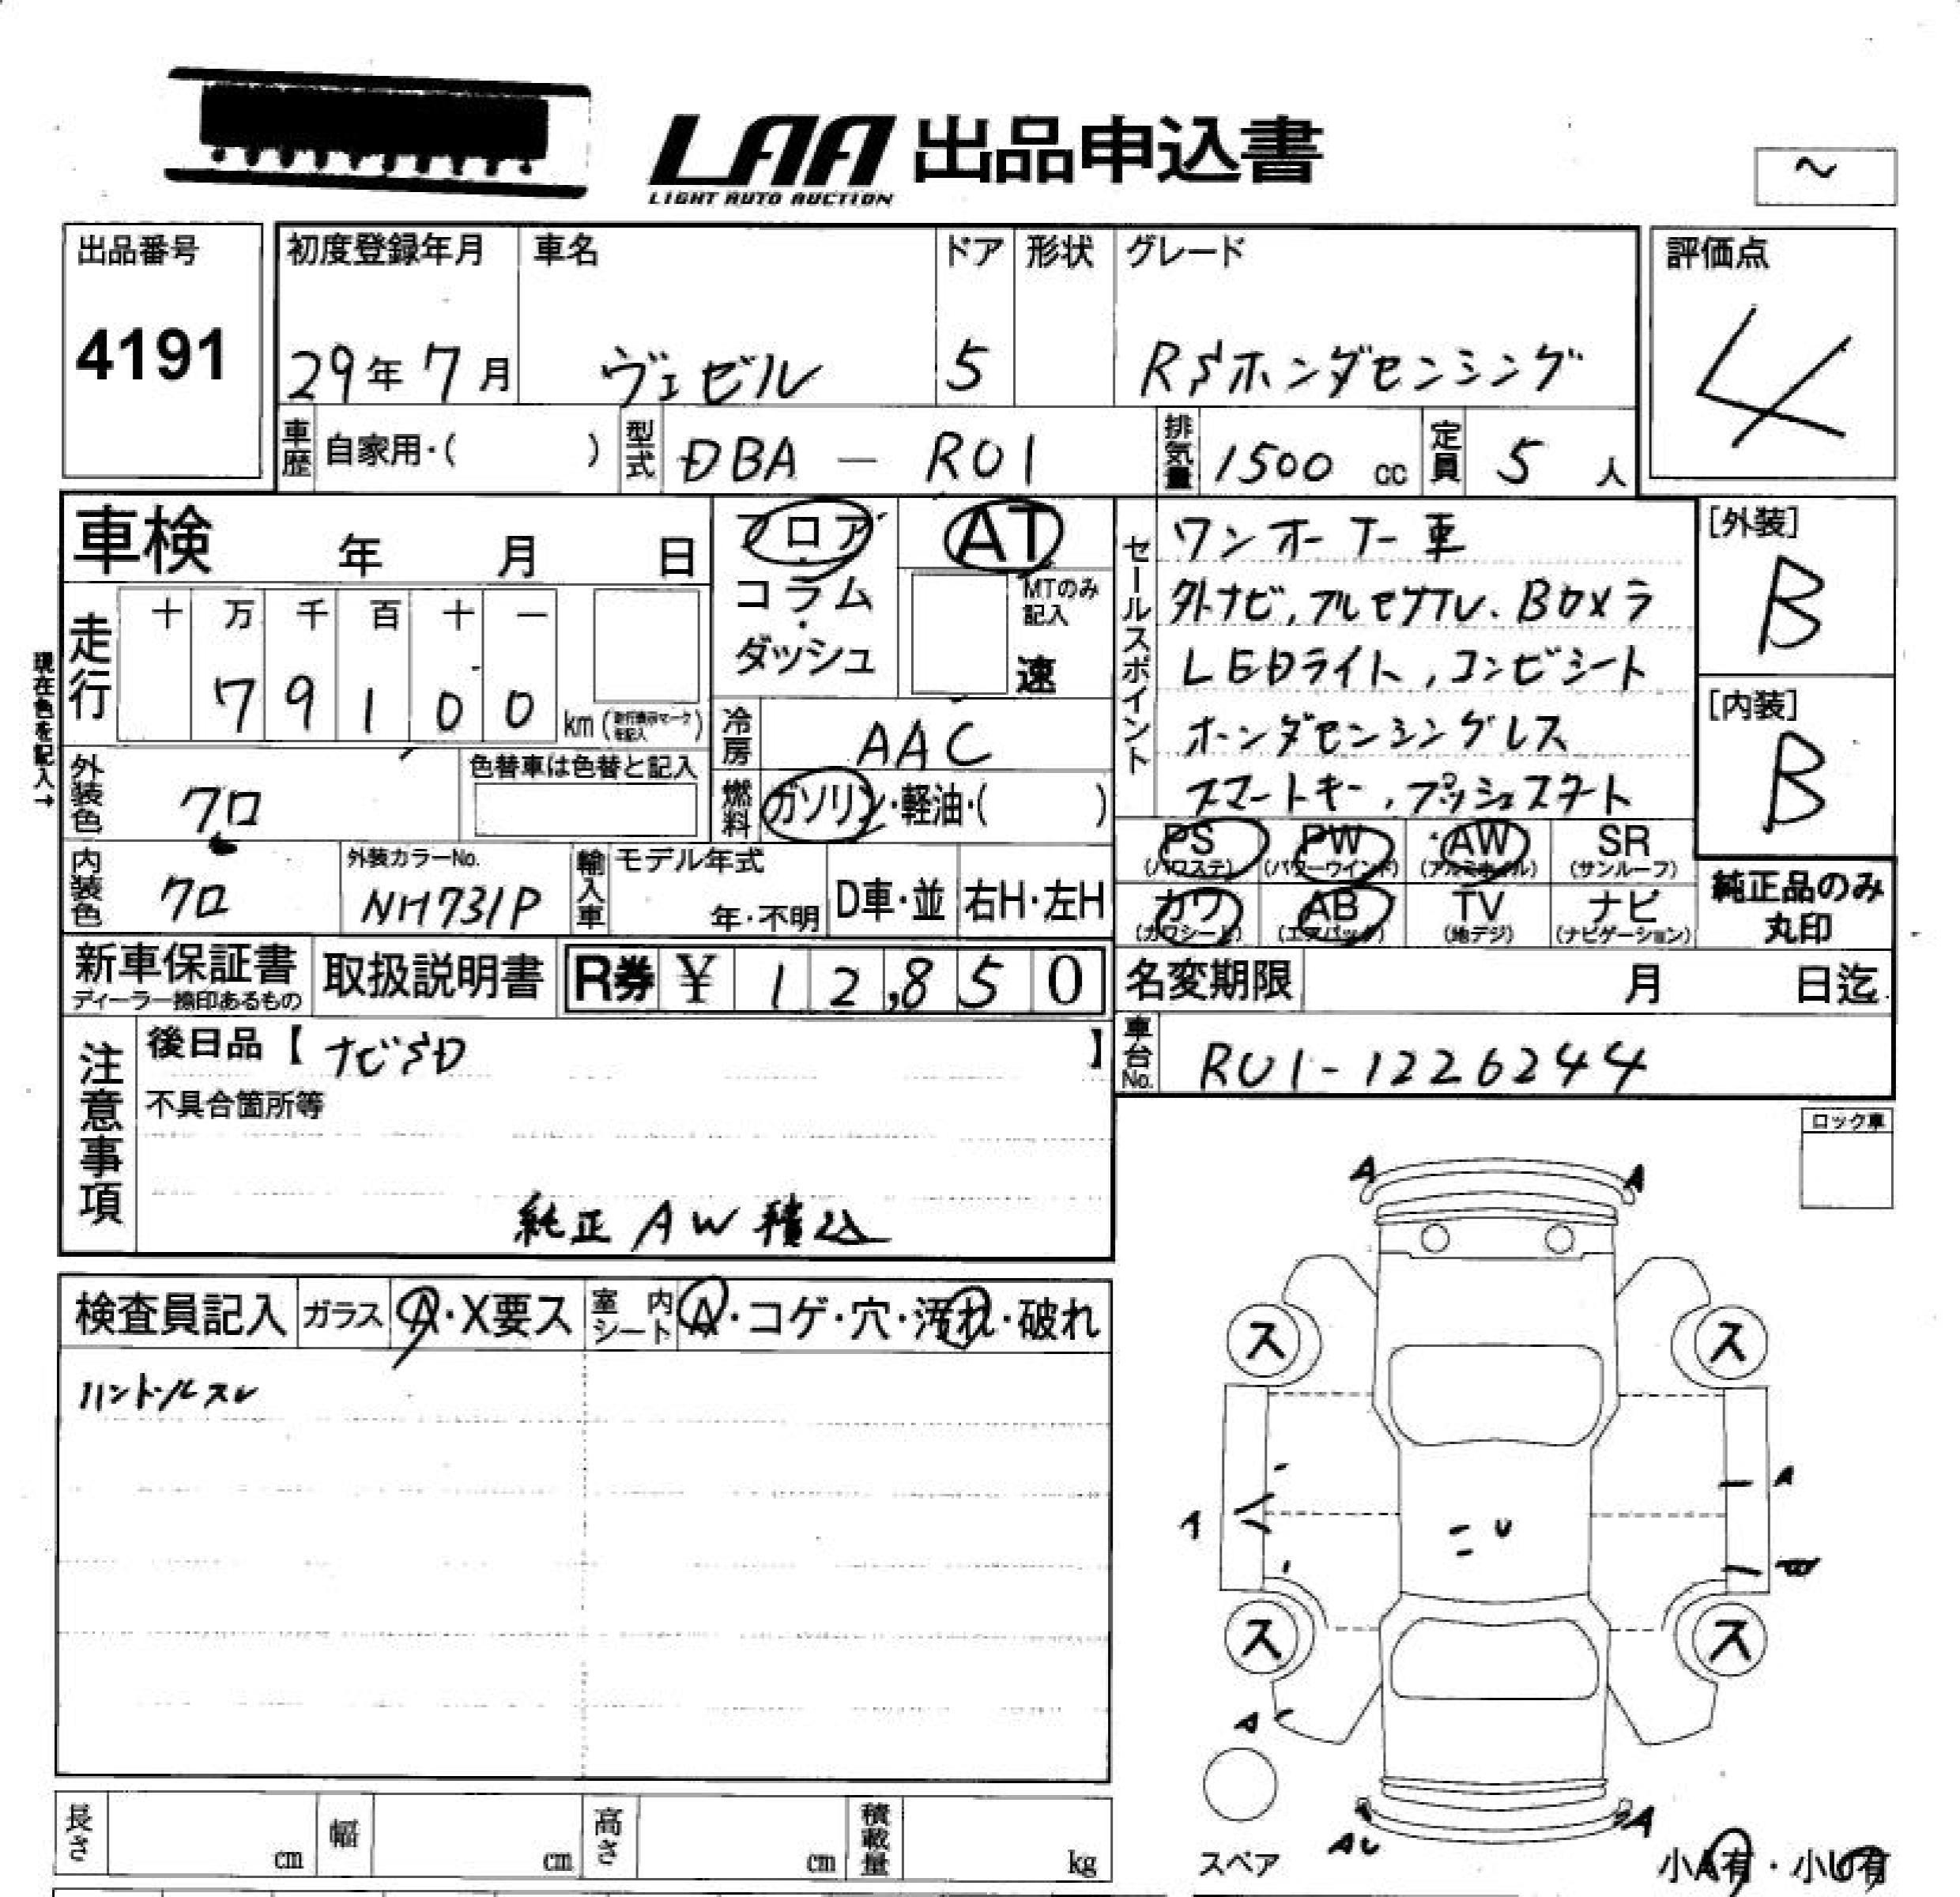 LAA 出品申込書
LIGHT AUTO AUCTION
~
出品番号
4191
初度登録年月
29年7月
車名
ヴェゼル
ドア
5
形状
グレード
RSホンダセンシング
評価点
4
車歴
自家用・( )
型式
DBA - RU1
排気量
1500 cc
定員
5 人
車検 年 月 日
フロア・
コラム・
ダッシュ
AT
MTのみ
記入
速
現在色を記入→
走行
十 万 千 百 十 一
7 9 1 0 0
km
冷房
AAC
外装色
クロ
色替車は色替と記入
燃料
ガソリン・軽油・( )
内装色
クロ
外装カラーNo.
NH731P
輸入車
モデル年式
年・不明
D車・並
右H・左H
セールスポイント
ワンオーナー車
外ナビ,フルセグTV、Bカメラ
LEDライト,コンビシート
ホンダセンシングレス
スマートキー,プッシュスタート
[外装]
B
[内装]
B
PS
(パワステ)
PW
(パワーウインド)
AW
(アルミホイル)
SR
(サンルーフ)
カワ
(カワシート)
AB
(エアバック)
TV
(地デジ)
ナビ
(ナビゲーション)
純正品のみ
丸印
新車保証書
ディーラー捺印あるもの
取扱説明書
R券 ¥ 12,850
名変期限 月 日迄
注意事項
後日品【 ナビSD 】
不具合箇所等
純正AW積込
車台No.
RU1-1226244
ロック車
検査員記入
ガラス
A・X要ス
室内シート
A・コゲ・穴・汚れ・破れ
ハンドルスレ
A A
ス ス
A
U
ス ス
A
AU A
スペア
小A有・小U有
長さ cm
幅 cm
高さ cm
積載量 kg